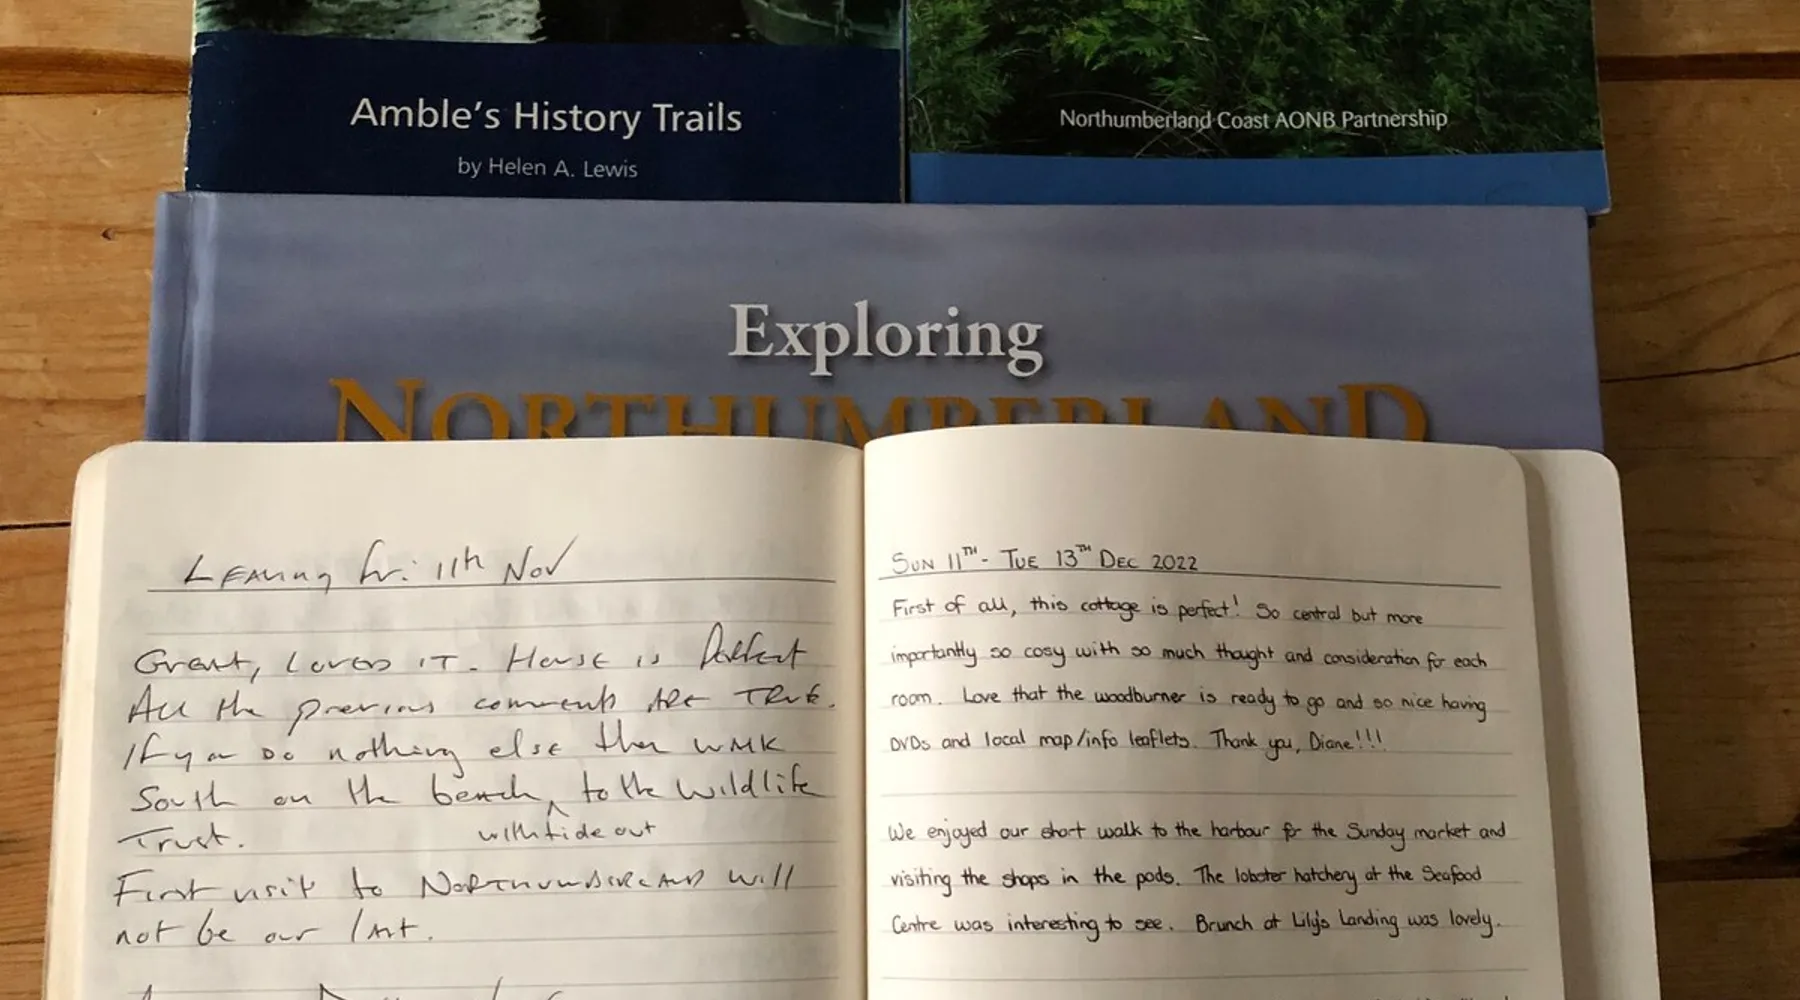 Amble's History Trails
by Helen A. Lewis
Northumberland Coast AONB Partnership
Exploring
NORTHUMBERLAND
Leaving Fri. 11th Nov
Great, loved it. House is Perfect
All the previous comments are true.
If you do nothing else then walk
South on the beach ^ to the Wildlife
with tide out
Trust.
First visit to Northumberland will
not be our last.
SUN 11TH - TUE 13TH DEC 2022
First of all, this cottage is perfect! So central but more
importantly so cosy with so much thought and consideration for each
room. Love that the woodburner is ready to go and so nice having
DVDs and local map/info leaflets. Thank you, Diane!!!
We enjoyed our short walk to the harbour for the Sunday market and
visiting the shops in the pods. The lobster hatchery at the Seafood
Centre was interesting to see. Brunch at Lily's Landing was lovely.